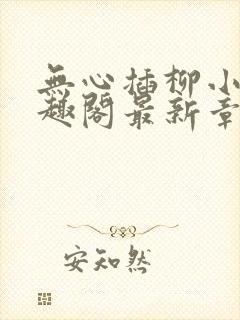 無心插柳小
趣閣最新章
安知然